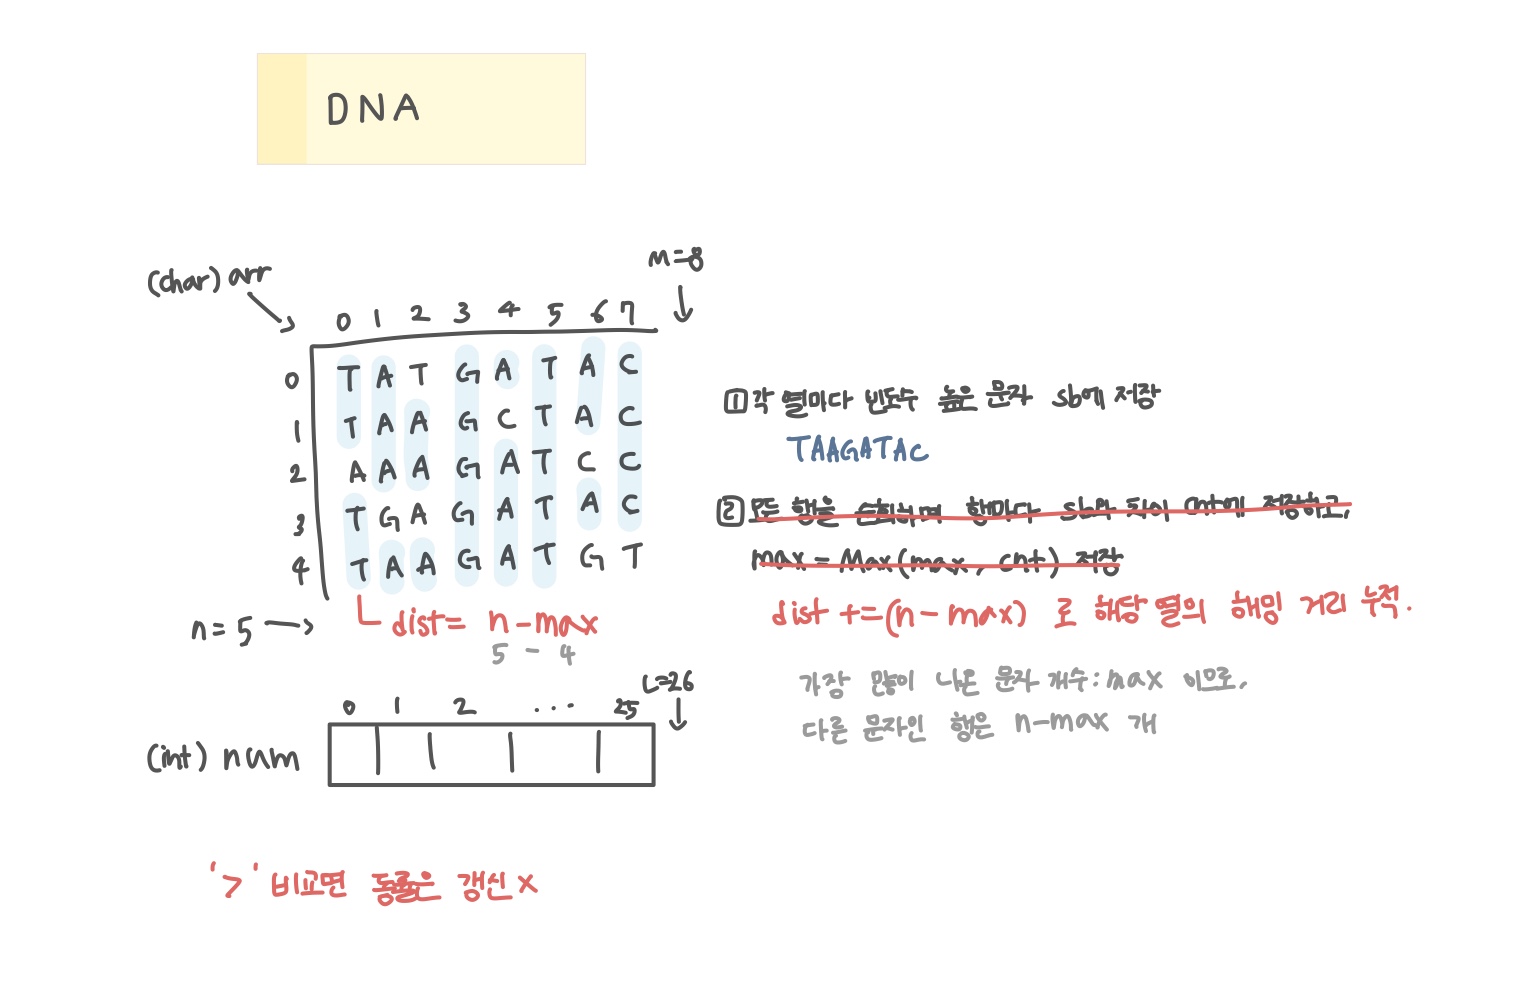 DNA
(char) arr
m=8
0 1 2 3 4 5 6 7
0 T A T G A T A C
1 T A A G C T A C
2 A A A G A T C C
3 T G A G A T A C
4 T A A G A T G T
n=5
dist= n-max
5 - 4
L=26
0 1 2 ... 25
(int) num
'>' 비교면 동률은 갱신 x
1 각 열마다 빈도수 높은 문자 sb에 저장
TAAGATAC
2 모든 행을 순회하며 행마다 sb와 차이 cnt에 저장하고,
max = Max(max, cnt) 저장
dist +=(n-max) 로 해당 열의 해밍 거리 누적.
가장 많이 나온 문자 개수: max 이므로,
다른 문자인 행은 n-max 개